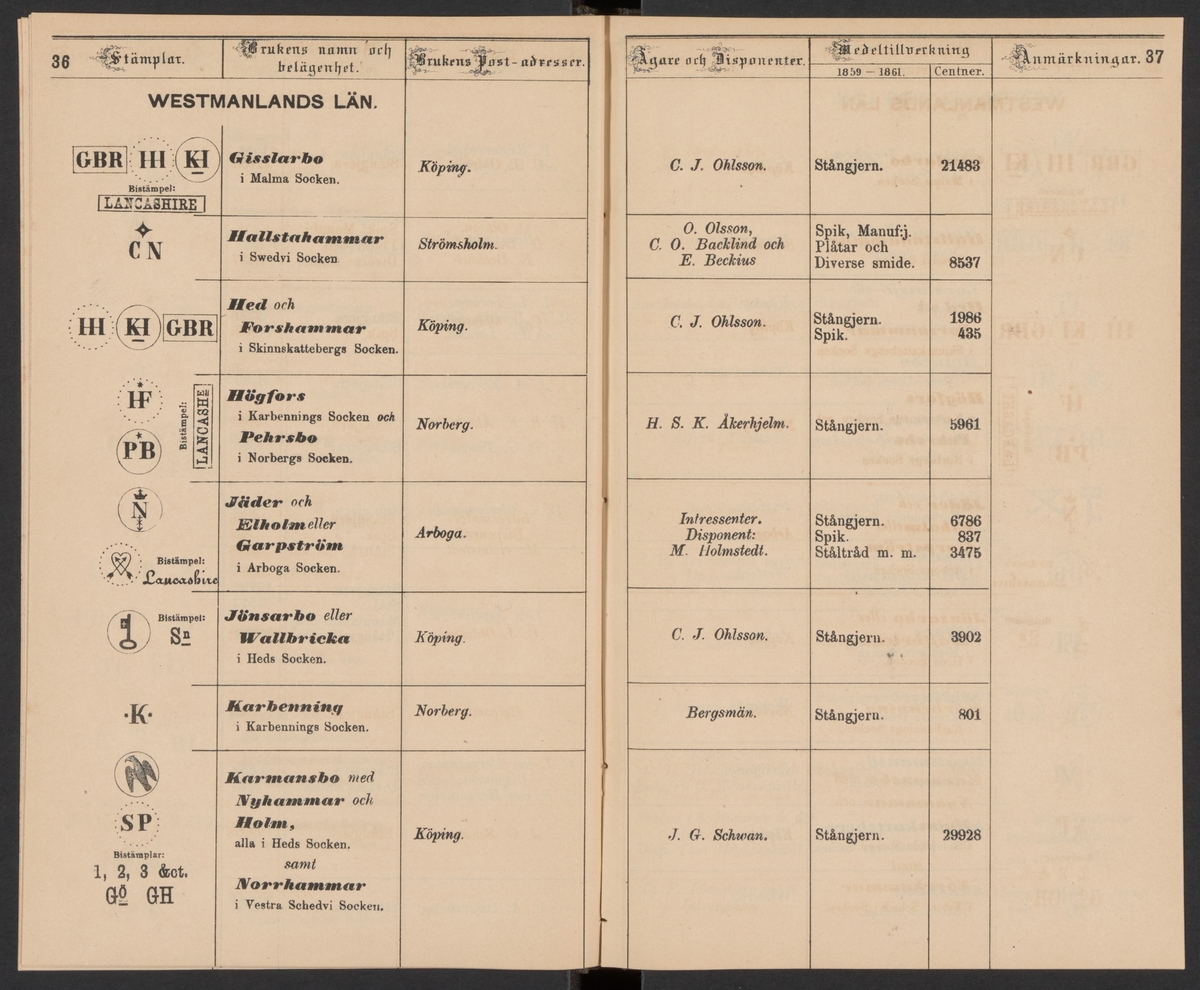 36
Stämplar.
Brukens namn och
belägenhet.
Brukens Post-adresser.
Ägare och Disponenter.
Medeltillverkning
1859 – 1861.
Centner.
Anmärkningar.
37
WESTMANLANDS LÄN.
GBR HI KI
Bistämpel:
LANCASHIRE
Gisslarbo
i Malma Socken.
Köping.
C. J. Ohlsson.
Stångjern. 21483
C N
Hallstahammar
i Swedvi Socken
Strömsholm.
O. Olsson,
C. O. Backlind och
E. Beckius
Spik, Manuf:j.
Plåtar och
Diverse smide. 8537
HI KI GBR
Hed och
Forshammar
i Skinnskattebergs Socken.
Köping.
C. J. Ohlsson.
Stångjern. 1986
Spik. 435
HF
PB
Bistämpel:
LANCASHE
Högfors
i Karbennings Socken och
Pehrsbo
i Norbergs Socken.
Norberg.
H. S. K. Åkerhjelm.
Stångjern. 5961
N
Bistämpel:
Lancashire
Jäder och
Elholm eller
Garpström
i Arboga Socken.
Arboga.
Intressenter.
Disponent:
M. Holmstedt.
Stångjern. 6786
Spik. 837
Ståltråd m. m. 3475
Bistämpel:
Sn
Jönsarbo eller
Wallbricka
i Heds Socken.
Köping.
C. J. Ohlsson.
Stångjern. 3902
·K·
Karbenning
i Karbennings Socken.
Norberg.
Bergsmän.
Stångjern. 801
SP
Bistämplar:
1, 2, 3 &ct.
GÖ GH
Karmansbo med
Nyhammar och
Holm,
alla i Heds Socken.
samt
Norrhammar
i Vestra Schedvi Socken.
Köping.
J. G. Schwan.
Stångjern. 29928